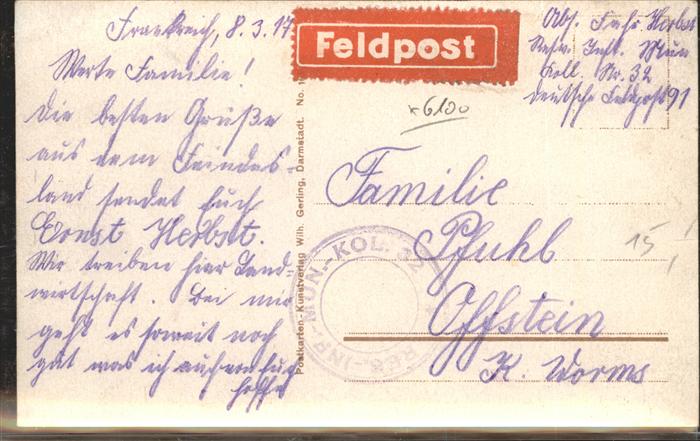 Frankreich, 8.3.17
Werte Familie!
die besten Grüße
aus dem Feindes-
land sendet Euch
Ernst Herbst.
Wir treiben hier Land-
wirtschaft. Bei mir
geht es soweit noch
gut was ich auch von Euch
hoffe
Postkarten-Kunstverlag Wilh. Gerling, Darmstadt. No. 1
Feldpost
Abs. Fahr. Herbst
Resrv. Inft. Mun
Koll. Nr. 32
deutsche Feldpost 91
x6100
Familie
Pfuhl
Offstein
K. Worms
15
RES.-INF. MUN.-KOL. 32